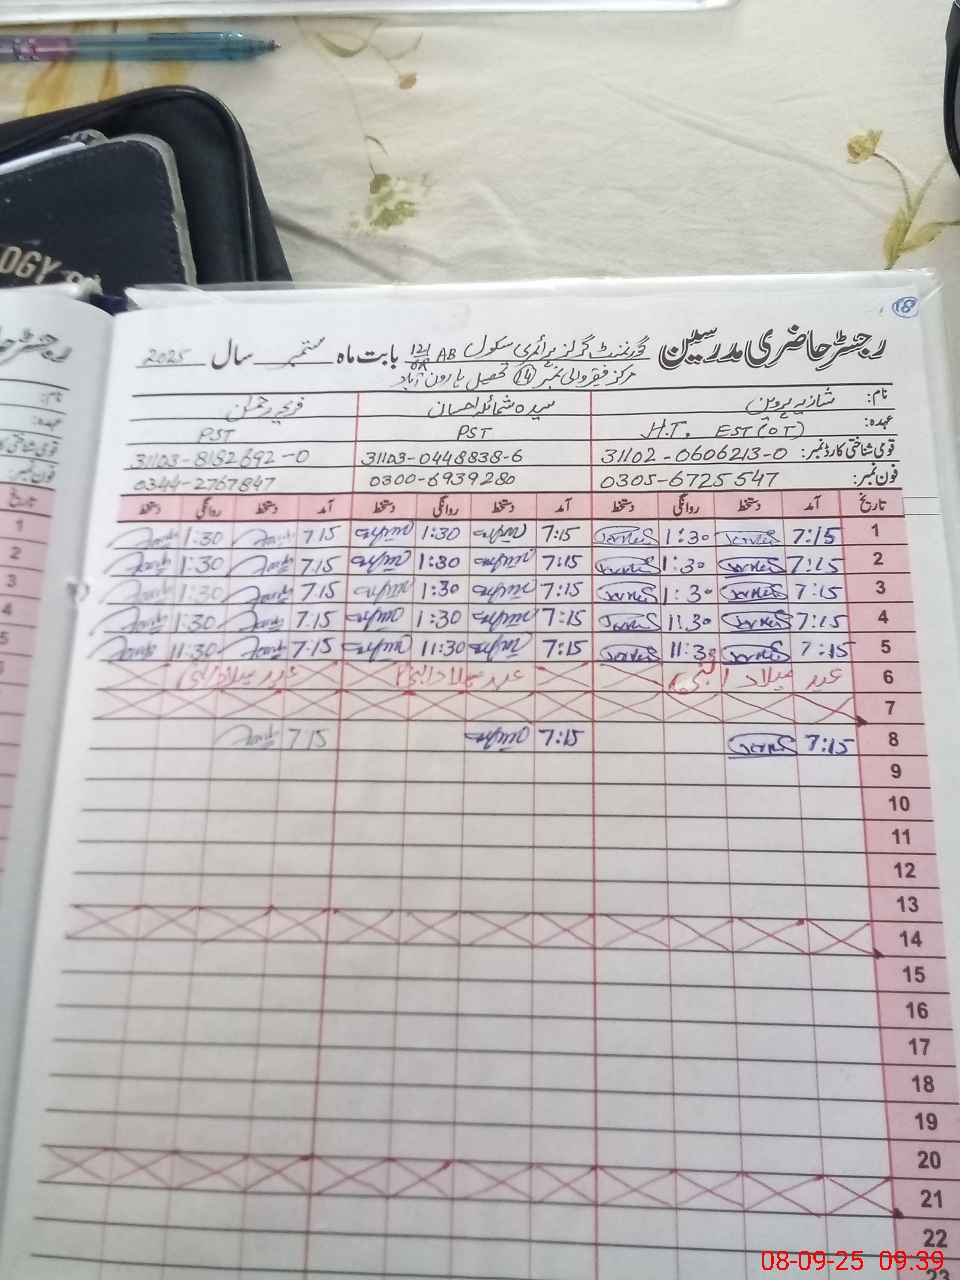 OGY
18
رجسٹر حاضری مدرسین گورنمنٹ گرلز پرائمری سکول 121/6R AB بابت ماہ ستمبر سال 2025
مرکز فقیروالی نمبر 14 تحصیل ہارون آباد
نام: شازیہ پروین سیدہ شمائلہ احسان فریحہ رحمان
عہدہ: H.T, EST(OT) PST PST
قومی شناختی کارڈ نمبر: 31102-0606213-0 31103-0448838-6 31103-8182692-0
فون نمبر: 0305-6725547 0300-6939280 0344-2767847
تاریخ آمد دستخط روانگی دستخط آمد دستخط روانگی دستخط آمد دستخط روانگی دستخط
1 7:15 1:30 7:15 1:30 7.15 1:30
2 7:15 1:30 7:15 1:30 7.15 1:30
3 7:15 1:30 7:15 1:30 7.15 1:30
4 7:15 11:30 7:15 1:30 7.15 1:30
5 7:15 11:30 7:15 11:30 7.15 11:30
6 عید میلاد النبی عید میلاد النبی عید میلاد النبی
7
8 7:15 7:15 7.15
9
10
11
12
13
14
15
16
17
18
19
20
21
22
23
08-09-25 09.39